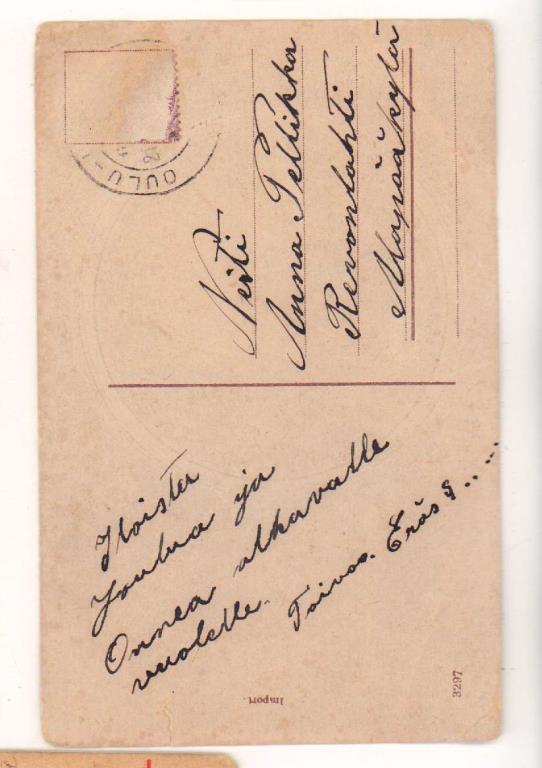 OULU
Neiti
Anna Pellikka
Revonlahti
Mäpääkylä
Iloista
Joulua ja
Onnea alkavalle
vuolelle.
Toivoo. Eräs
Import
3297